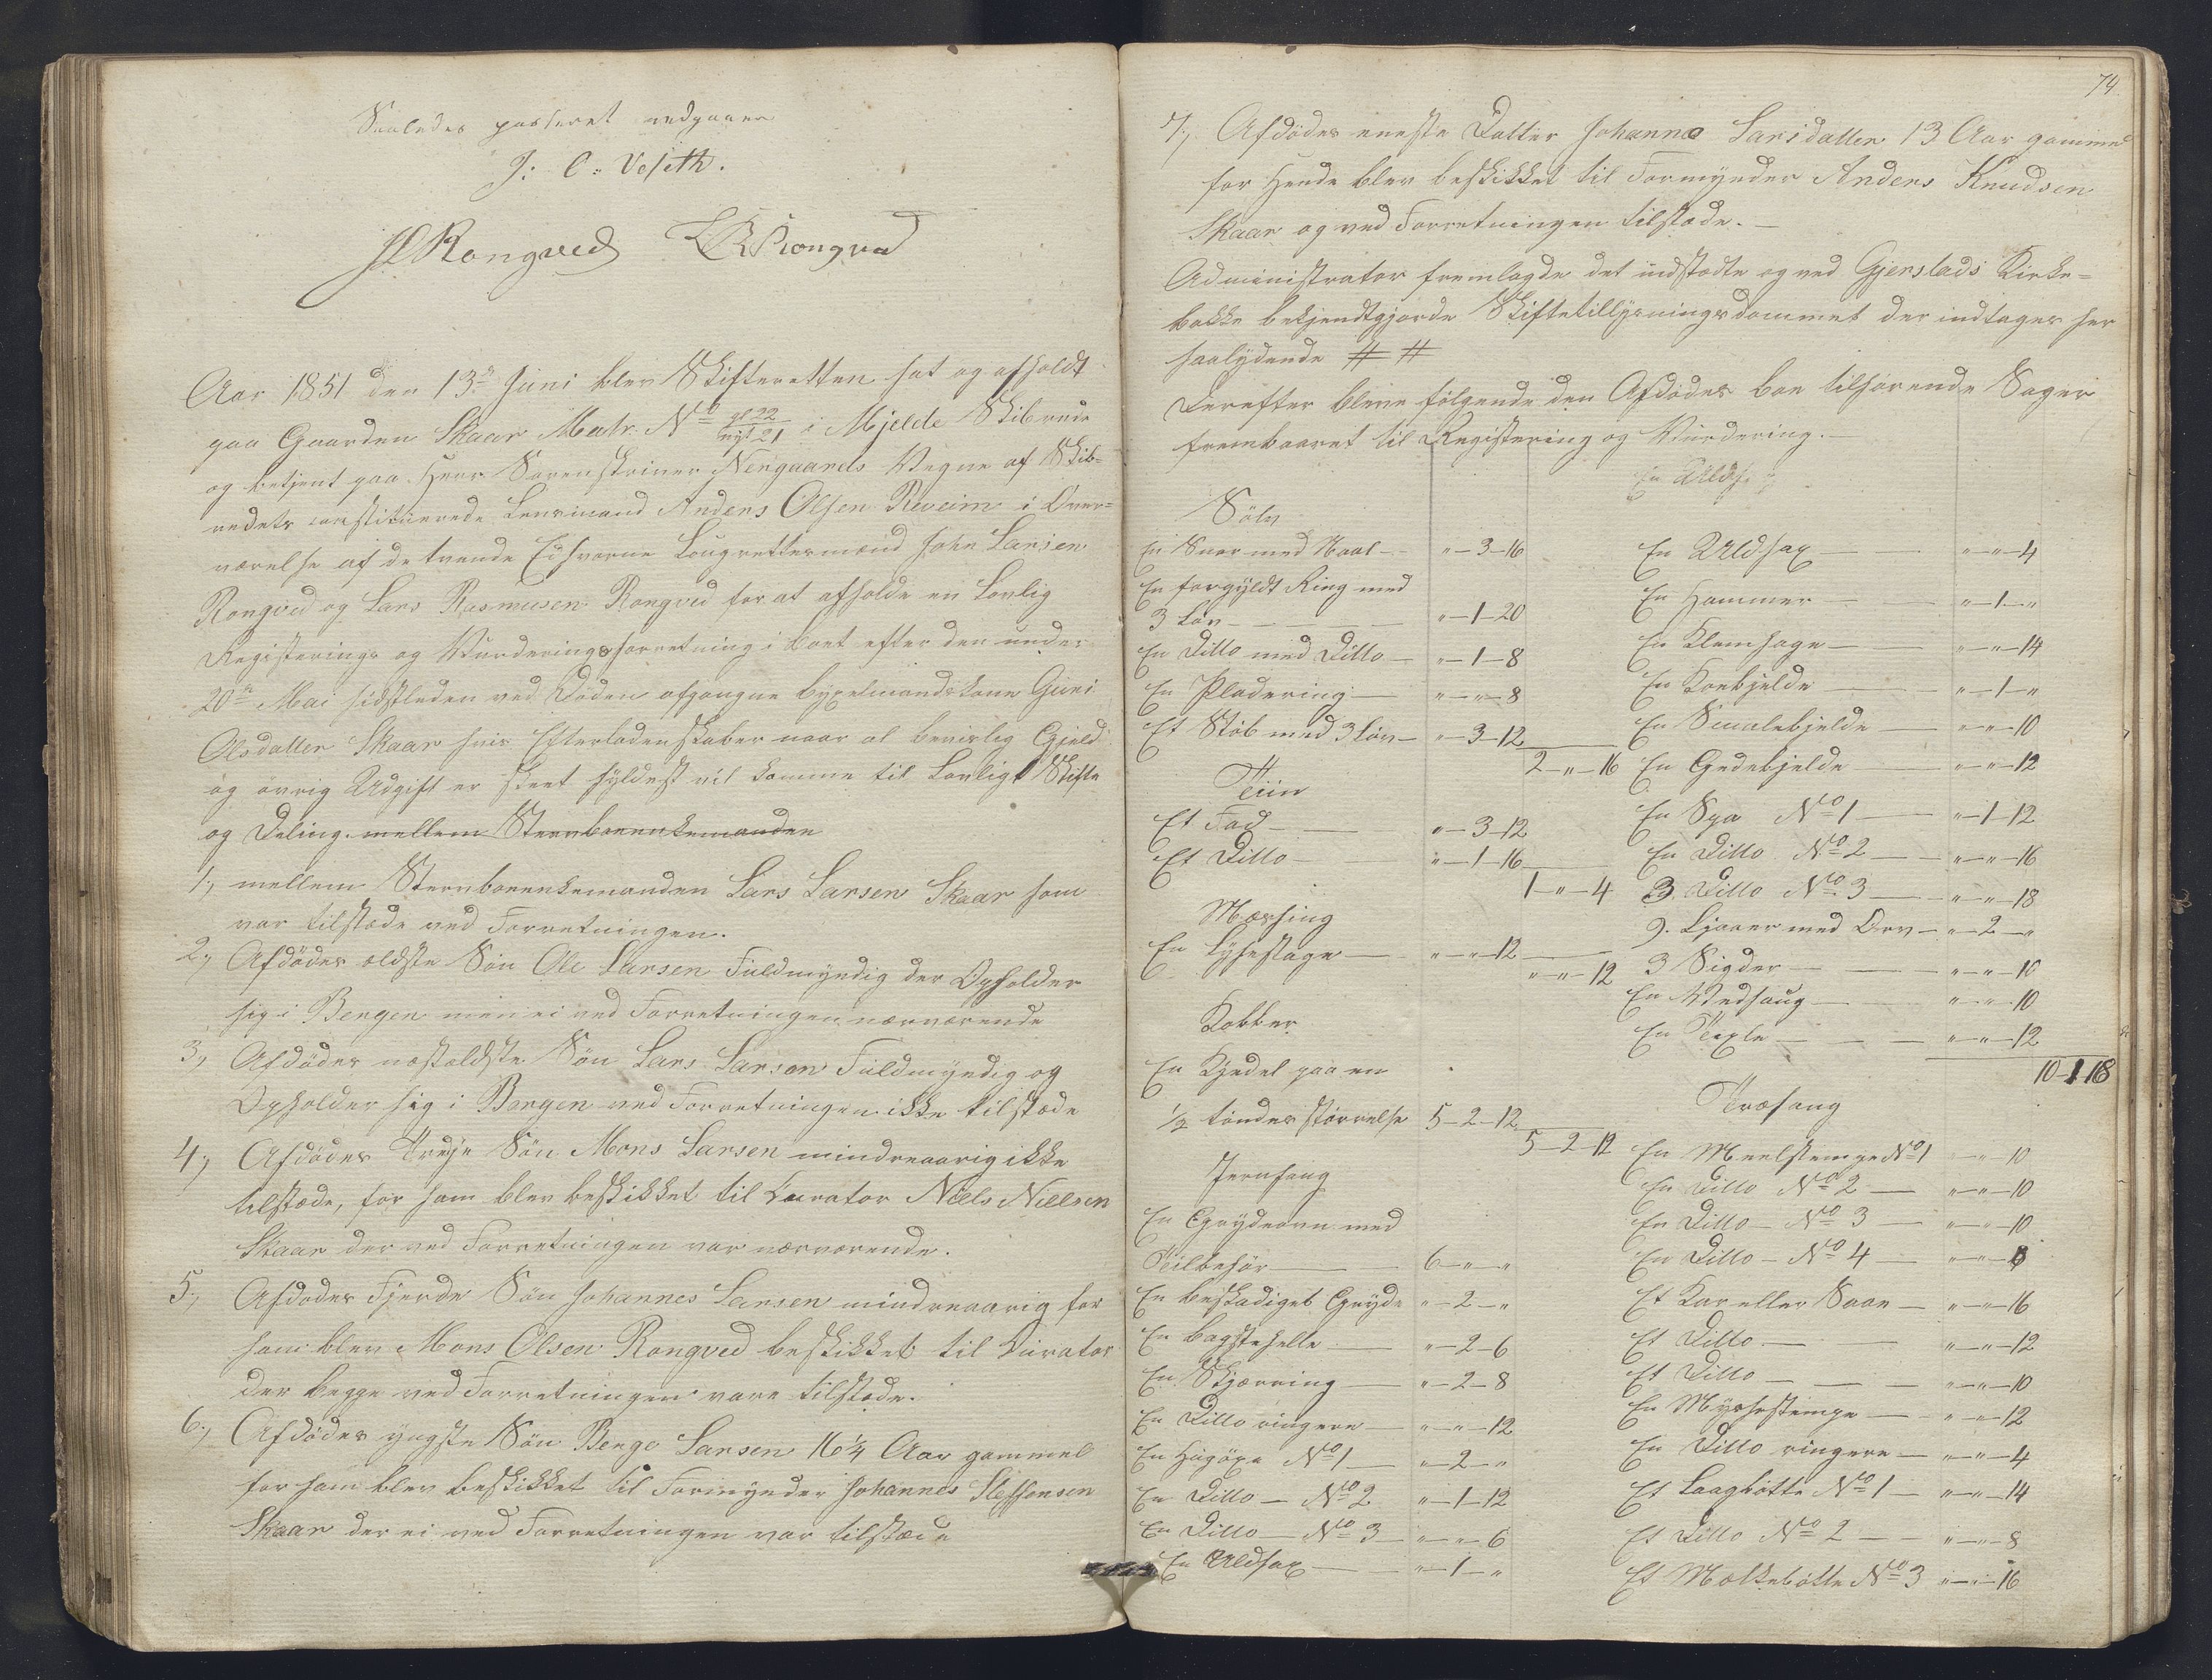 Saaledes passeret vedgaaes
J: C: Vefeth.
JLRongved LRRongved
Aar 1851 den 13de Juni blev Skifteretten sat og afholdt
paa Gaarden Skaar Matr. No gl 22 nyt 21 i Mjelde Skibrede
og betjent paa Herr Sorenskriver Nergaards Vegne af Skib-
redets constituerede Lensmand Anders Olsen Reveim i Over-
værelse af de tvende Eedsvorne Laugrettesmænd John Larsen
Rongved og Lars Rasmusen Rongved for at afholde en Lovlig
Registerings og Vurderingsforretning i Boet efter den under
20de Mai sidstleden ved Døden afgangne Bygselmandskone Guni
Olsdatter Skaar hvis Efterladenskaber naar al beviislig Gjeld
og øvrig Udgift er skeet fyldest vil komme til Lovligt Skifte
og Deling. mellem Stervboeenkemanden
1, mellem Stervboeenkemanden Lars Larsen Skaar som
var tilstæde ved Forretningen.
2, Afdødes ældste Søn Ole Larsen Fuldmyndig der Opholder
sig i Bergen men ei ved Forretningen nærværende
3, Afdødes næstældste Søn Lars Larsen Fuldmyndig og
Opholder sig i Bergen ved Forretningen ikke tilstæde
4, Afdødes Tredje Søn Mons Larsen mindreaarig ikke
tilstæde, for ham blev beskikket til Curator Niels Nielsen
Skaar der ved Forretningen var nærværende.
5, Afdødes Fjerde Søn Johannes Larsen mindreaarig for
ham blev Mons Olsen Rongved beskikket til Curator
der begge ved Forretningen vare tilstæde.
6, Afdødes yngste Søn Benge Larsen 16 1/4 Aar gammel
for ham blev beskikket til Formynder Johannes Steffensen
Skaar der ei ved Forretningen var tilstæde
74
7, Afdødes eneste Datter Johanna Larsdatter 13 Aar gammel
for Hende blev beskikket til Formynder Anders Knudsen
Skaar og ved Forretningen tilstæde. —
Administrator fremlagde det udstædte og ved Gjerstads Kirke-
bakke bekjendtgjorde Skiftetillysningsdocument der indtages her
saalydende # #
Derefter bleve følgende den Afdødes Boe tilhørende Sager
frembaaret til Registering og Vurdering. —
Sølv
En Snor med Naal — " — 3 — 16
En forgyldt Ring med
3 Løv — " — 1 — 20
En Ditto med Ditto — " — 1 — 8
En Pladering — " — " — 8
Et Støb med 3 Løv — " — 3 — 12
2 — " — 16
Tiin
Et Fad — " — 3 — 12
Et Ditto — " — 1 — 16
1 — " — 4
Messing
En Lysestage — " — " — 12
" — " — 12
Kobber
En Kjedel paa en
1/2 tøndes størrelse 5 — 2 — 12
5 — 2 — 12
Jernfang
En Grydeovn med
Tilbehør — 6 — " — "
En beskadiget Gryde " — 2 — "
En Bagstehelle — " — 2 — 6
En Skjæring — " — 2 — 8
En Ditto ringere — " — " — 12
En Hugøxe No 1 — " — 2 — "
En Ditto — No 2 " — 1 — 12
En Ditto — No 3 — " — " — 6
En Uldsax — " — 1 — "
En Uldsax
En Uldsax — " — " — 4
En Hammer — " — 1 — "
En Klemsage — " — " — 14
En Koebjelde — " — 1 — "
En Smalebjelde — " — " — 10
En Gedebjelde — " — " — 12
En Spa No 1 — " — 1 — 12
En Ditto No 2 — " — " — 16
3 Ditto No 3 — " — " — 18
9. Ljaaer med Orv — " — 2 — "
3 Sigder — " — " — 10
En Vedsaug — " — " — 10
En Texle — " — " — 12
10 — 1 — 18
Træfang
En Meelstampe No 1 — " — 10
En Ditto No 2 — " — " — 10
En Ditto — No 3 — " — " — 10
En Ditto — No 4 — " — " — 8
Et Kar eller Saae — " — " — 16
Et Ditto — " — " — 12
Et Ditto — " — " — 10
En Myssestampe — " — " — 12
En Ditto ringere — " — " — 4
Et Laagbøtte No 1 — " — " — 14
Et Ditto No 2 — " — " — 8
Et Melkebøtte No 3 " — " — 16